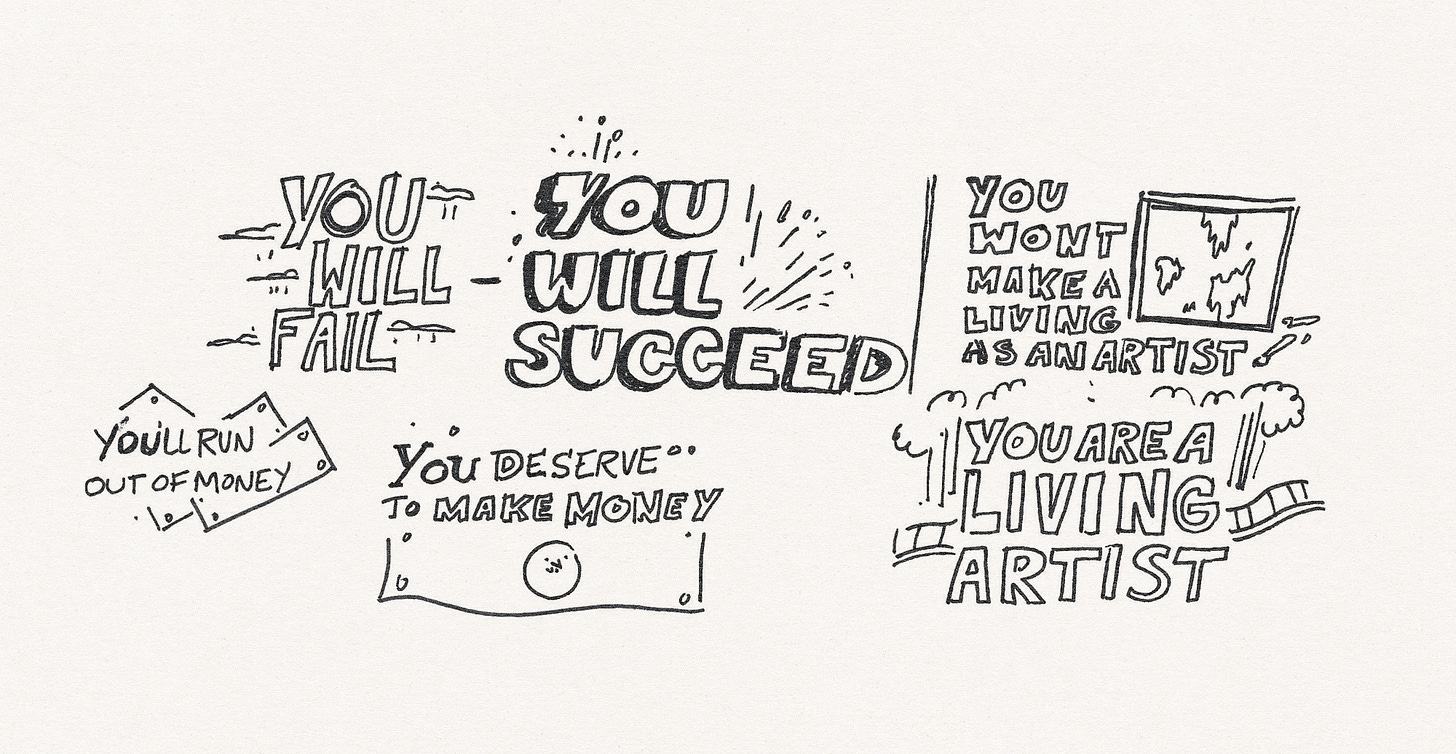 YOU
WILL
FAIL
-
YOU
WILL
SUCCEED
YOU
WONT
MAKE A
LIVING
AS AN ARTIST
YOU'LL RUN
OUT OF MONEY
YOU DESERVE
TO MAKE MONEY
YOU ARE A
LIVING
ARTIST